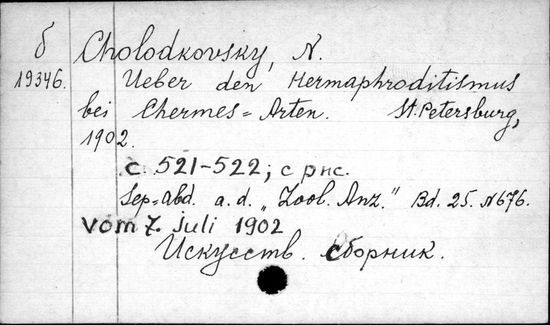 б Cholodkovsky, N.
19346. Ueber den Hermaphroditismus
bei Chermes=Arten. St. Petersburg,
1902.
с. 521-522; с рис.
Sep=abd. a. d. „Zool. Anz." Bd. 25. №676.
vom 7. juli 1902
Искусств. сборник.